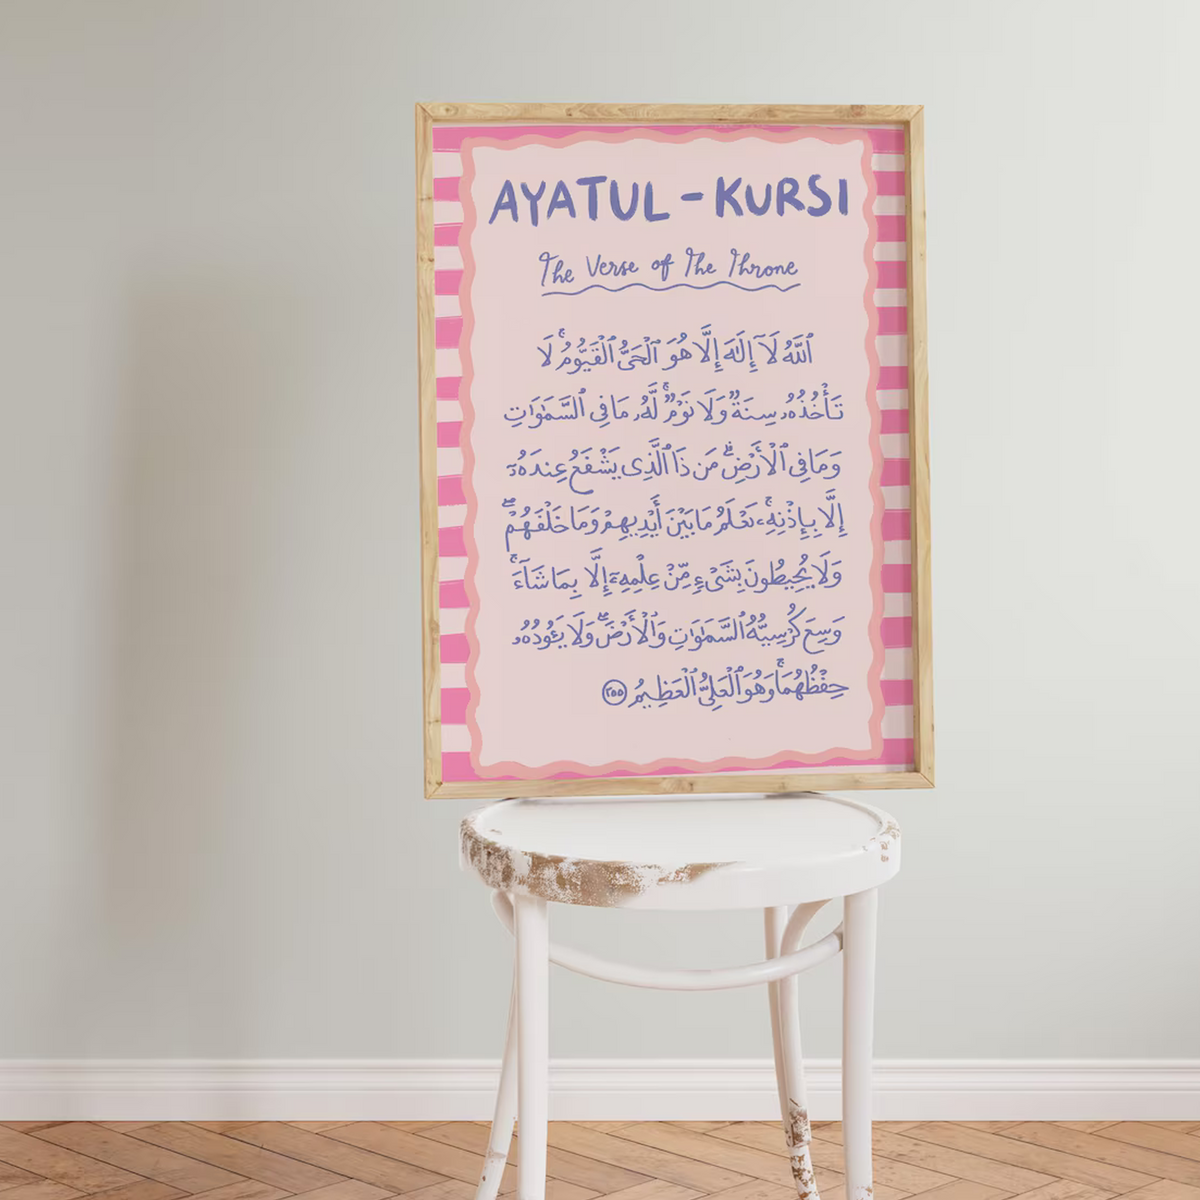 AYATUL - KURSI
The Verse of The Throne
ٱللَّهُ لَآ إِلَٰهَ إِلَّا هُوَ ٱلْحَىُّ ٱلْقَيُّومُ ۚ لَا
تَأْخُذُهُۥ سِنَةٌ وَلَا نَوْمٌ ۚ لَّهُۥ مَا فِى ٱلسَّمَٰوَٰتِ
وَمَا فِى ٱلْأَرْضِ ۗ مَن ذَا ٱلَّذِى يَشْفَعُ عِندَهُۥٓ
إِلَّا بِإِذْنِهِۦ ۚ يَعْلَمُ مَا بَيْنَ أَيْدِيهِمْ وَمَا خَلْفَهُمْ ۖ
وَلَا يُحِيطُونَ بِشَىْءٍ مِّنْ عِلْمِهِۦٓ إِلَّا بِمَا شَآءَ ۚ
وَسِعَ كُرْسِيُّهُ ٱلسَّمَٰوَٰتِ وَٱلْأَرْضَ ۖ وَلَا يَـُٔودُهُۥ
حِفْظُهُمَا ۚ وَهُوَ ٱلْعَلِىُّ ٱلْعَظِيمُ ٢٥٥